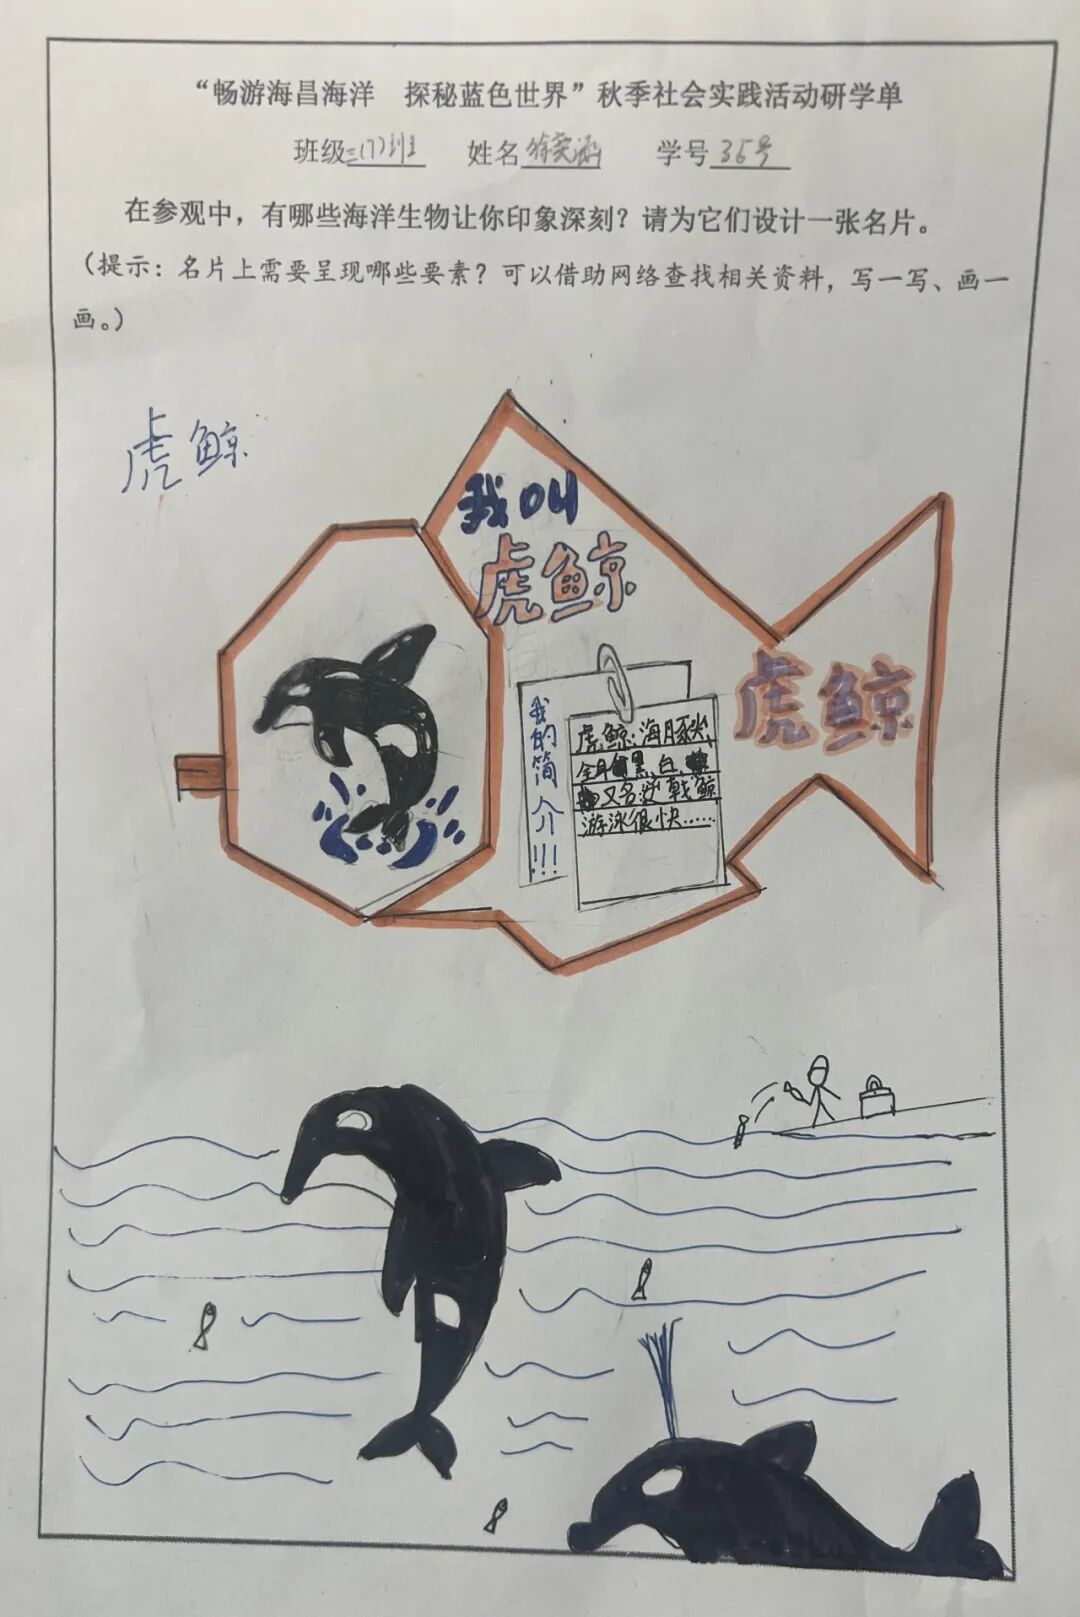 “畅游海昌海洋　探秘蓝色世界”秋季社会实践活动研学单
班级三(7)班　姓名徐奕涵　学号35号
在参观中，有哪些海洋生物让你印象深刻？请为它们设计一张名片。
（提示：名片上需要呈现哪些要素？可以借助网络查找相关资料，写一写、画一
画。）
虎鲸
我叫
虎鲸
虎鲸
我的简介!!!
虎鲸：海豚类、
全身黑、白、
又名逆戟鲸
游泳很快……